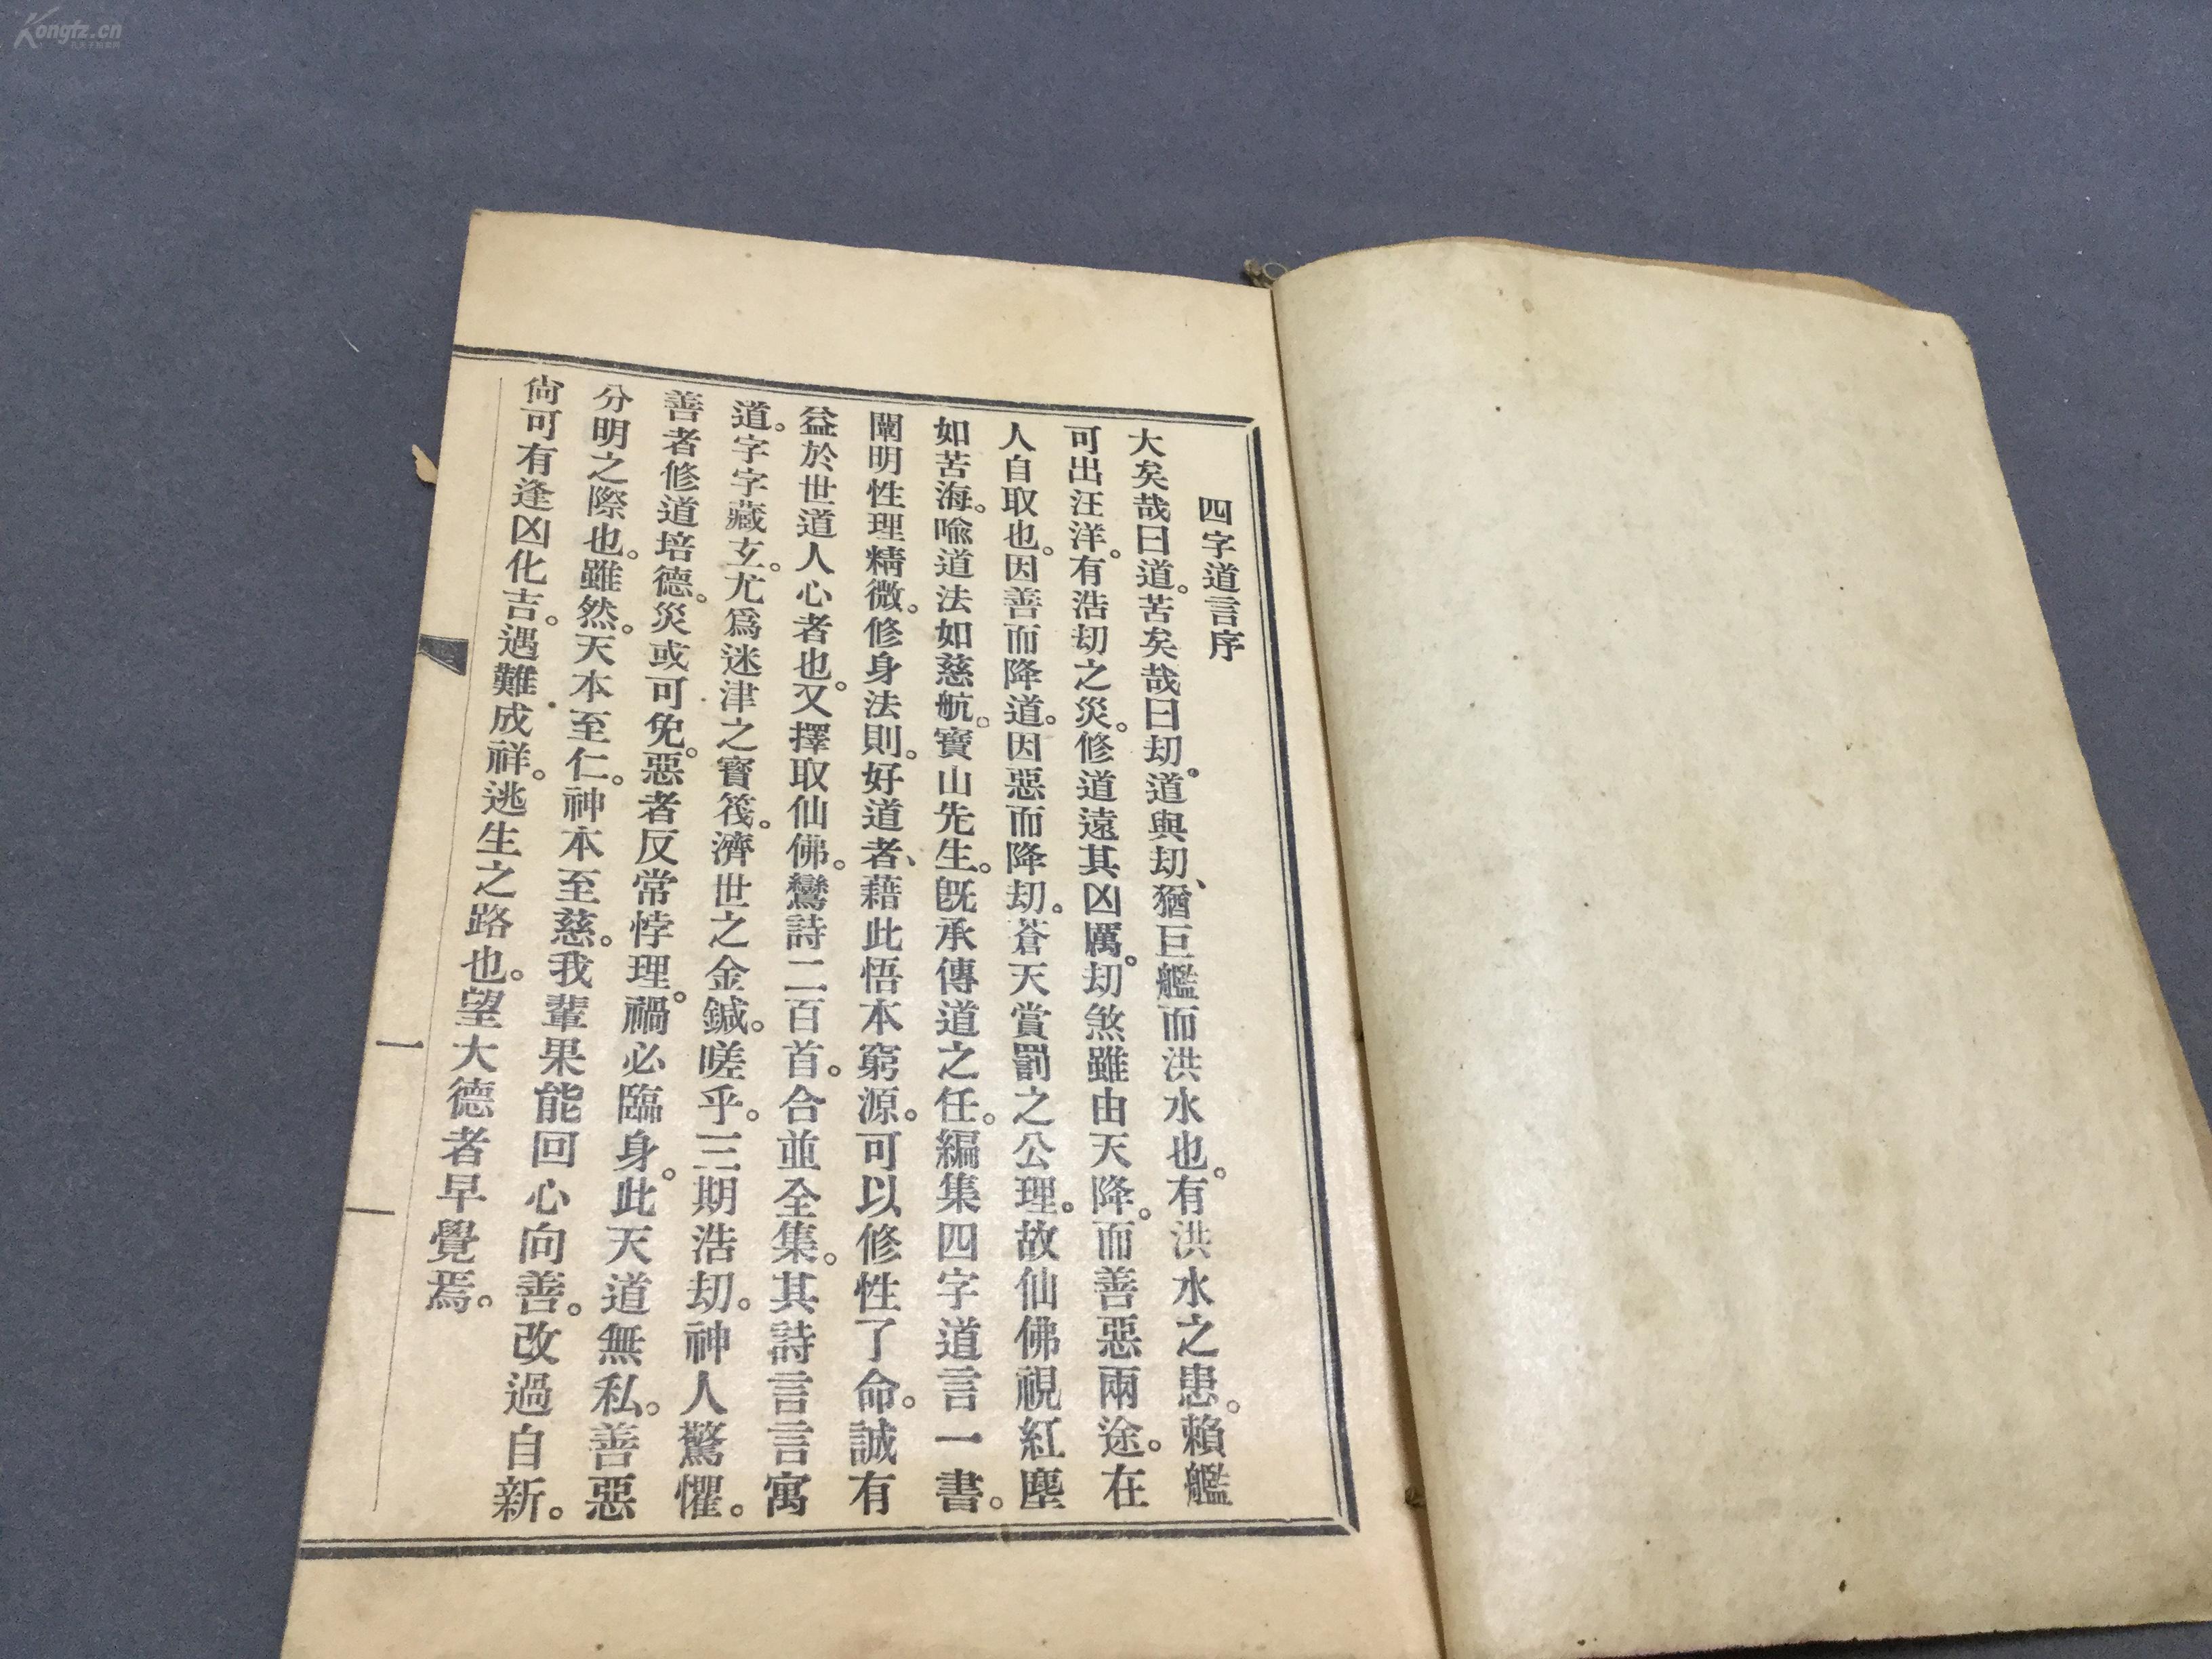 四字道言序
大矣哉曰道。苦矣哉曰刧。道與刧、猶巨艦而洪水也。有洪水之患。賴艦
可出汪洋。有浩刧之災。修道遠其凶厲。刧煞雖由天降。而善惡兩途。在
人自取也。因善而降道。因惡而降刧。蒼天賞罰之公理。故仙佛視紅塵
如苦海。喩道法如慈航。寶山先生。旣承傳道之任。編集四字道言一書。
闡明性理精微。修身法則。好道者、藉此悟本窮源。可以修性了命。誠有
益於世道人心者也。又擇取仙佛。鸞詩二百首。合並全集。其詩言言寓
道。字字藏玄。尤爲迷津之寶筏。濟世之金鍼。嗟乎。三期浩刧。神人驚懼。
善者修道培德。災或可免。惡者反常悖理。禍必臨身。此天道無私。善惡
分明之際也。雖然。天本至仁。神本至慈。我輩果能回心向善。改過自新。
尙可有逢凶化吉。遇難成祥。逃生之路也。望大德者早覺焉。
一
Kongfz.cn